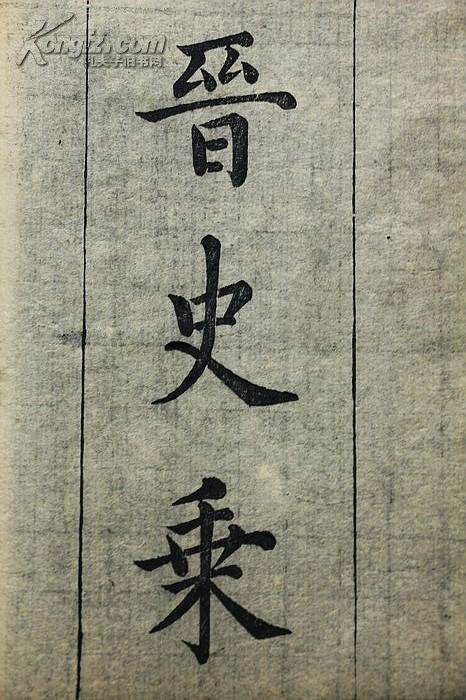 Kongfz.com
孔夫子旧书网
晉史乗